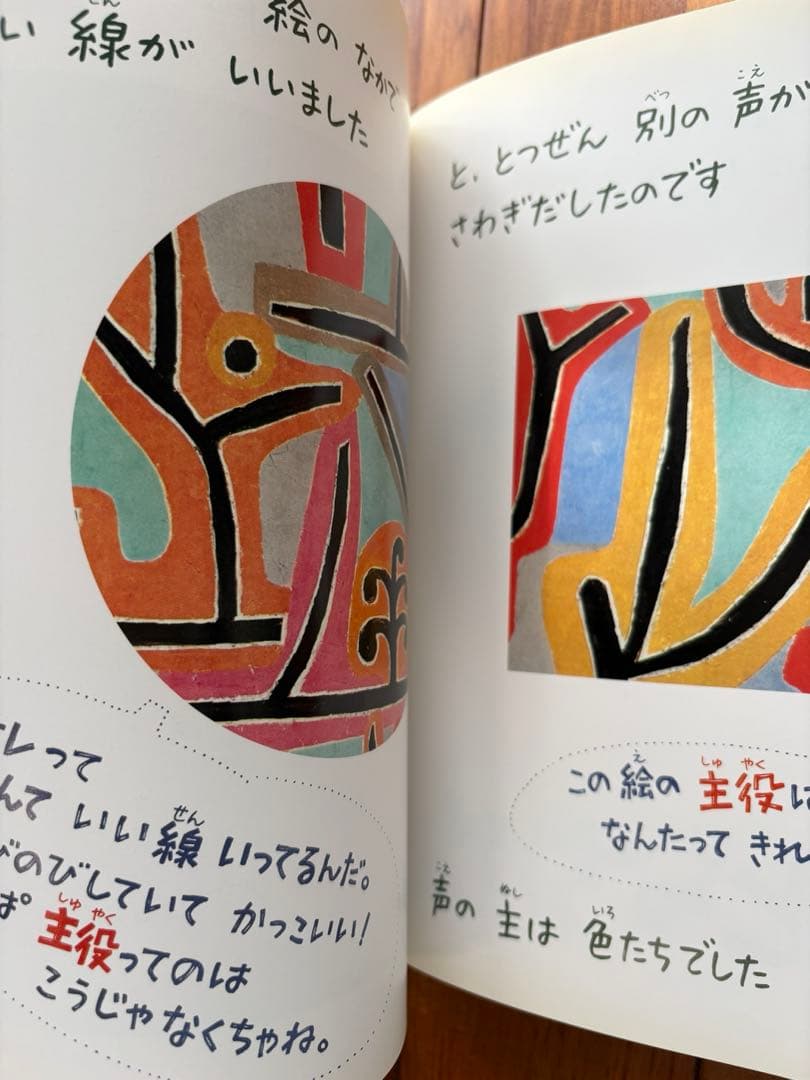 い 線が
せん
絵の なかで
いいました
レって
んて いい線 いってるんだ。
せん
びのびしていて かっこいい!
ぱ 主役ってのは
しゅ やく
こうじゃなくちゃね。
と、とつぜん 別の 声が
べつ こえ
さわぎだしたのです
この 絵の 主役は
え しゅ やく
なんたって きれ
声の 主は 色たちでした
こえ ぬし いろ